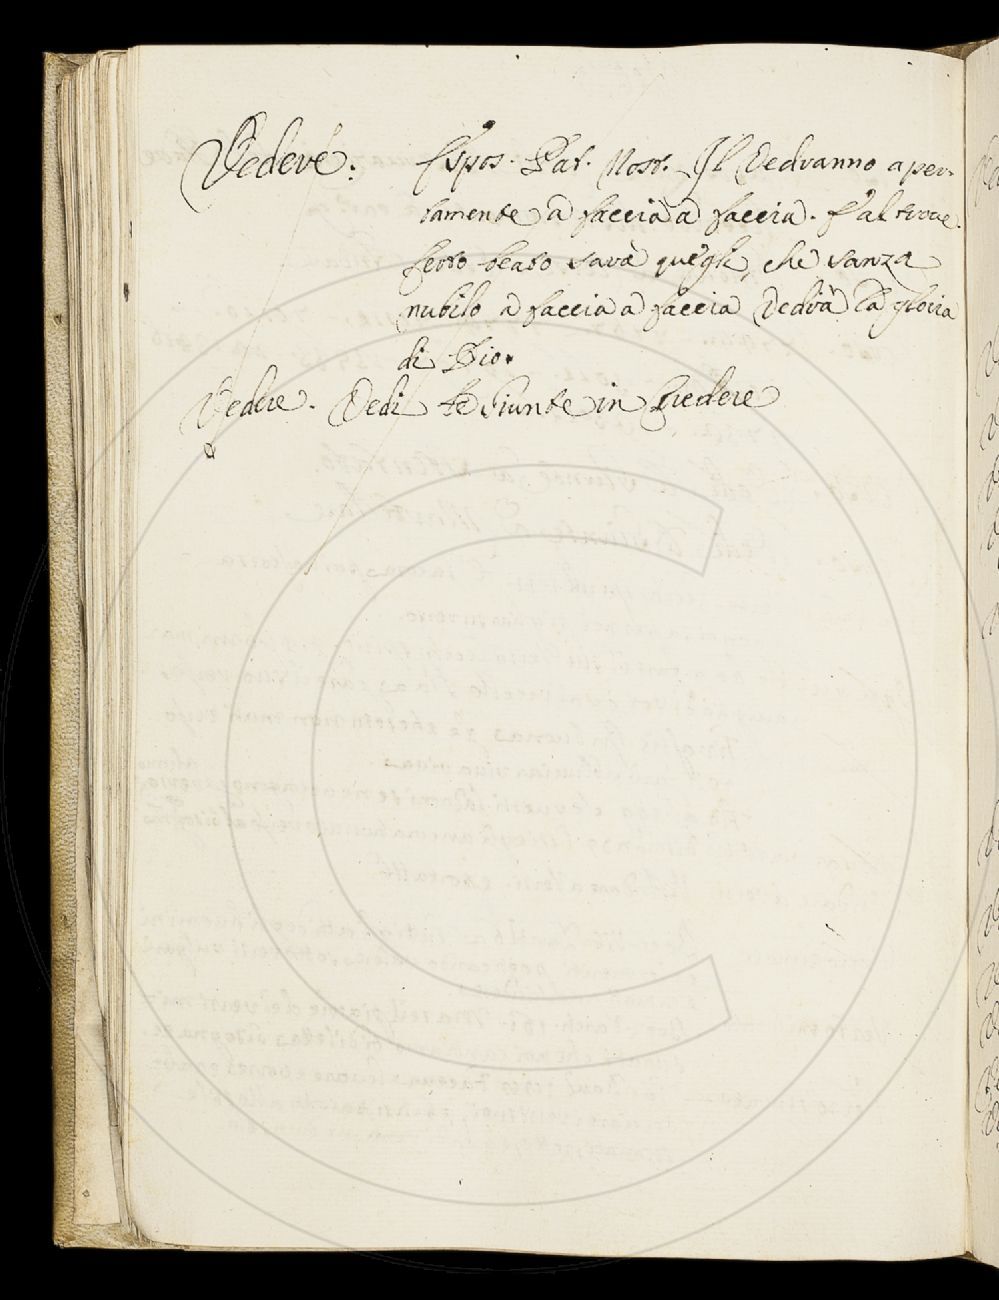 Vedere. Espos. Pat. Nost. Il vedranno aper-
tamente a faccia a faccia. E altrove.
Certo beato sarà quegli, che sanza
nubilo a faccia a faccia vedrà la gloria
di Dio.
Vedere. Vedi le Giunte in Credere